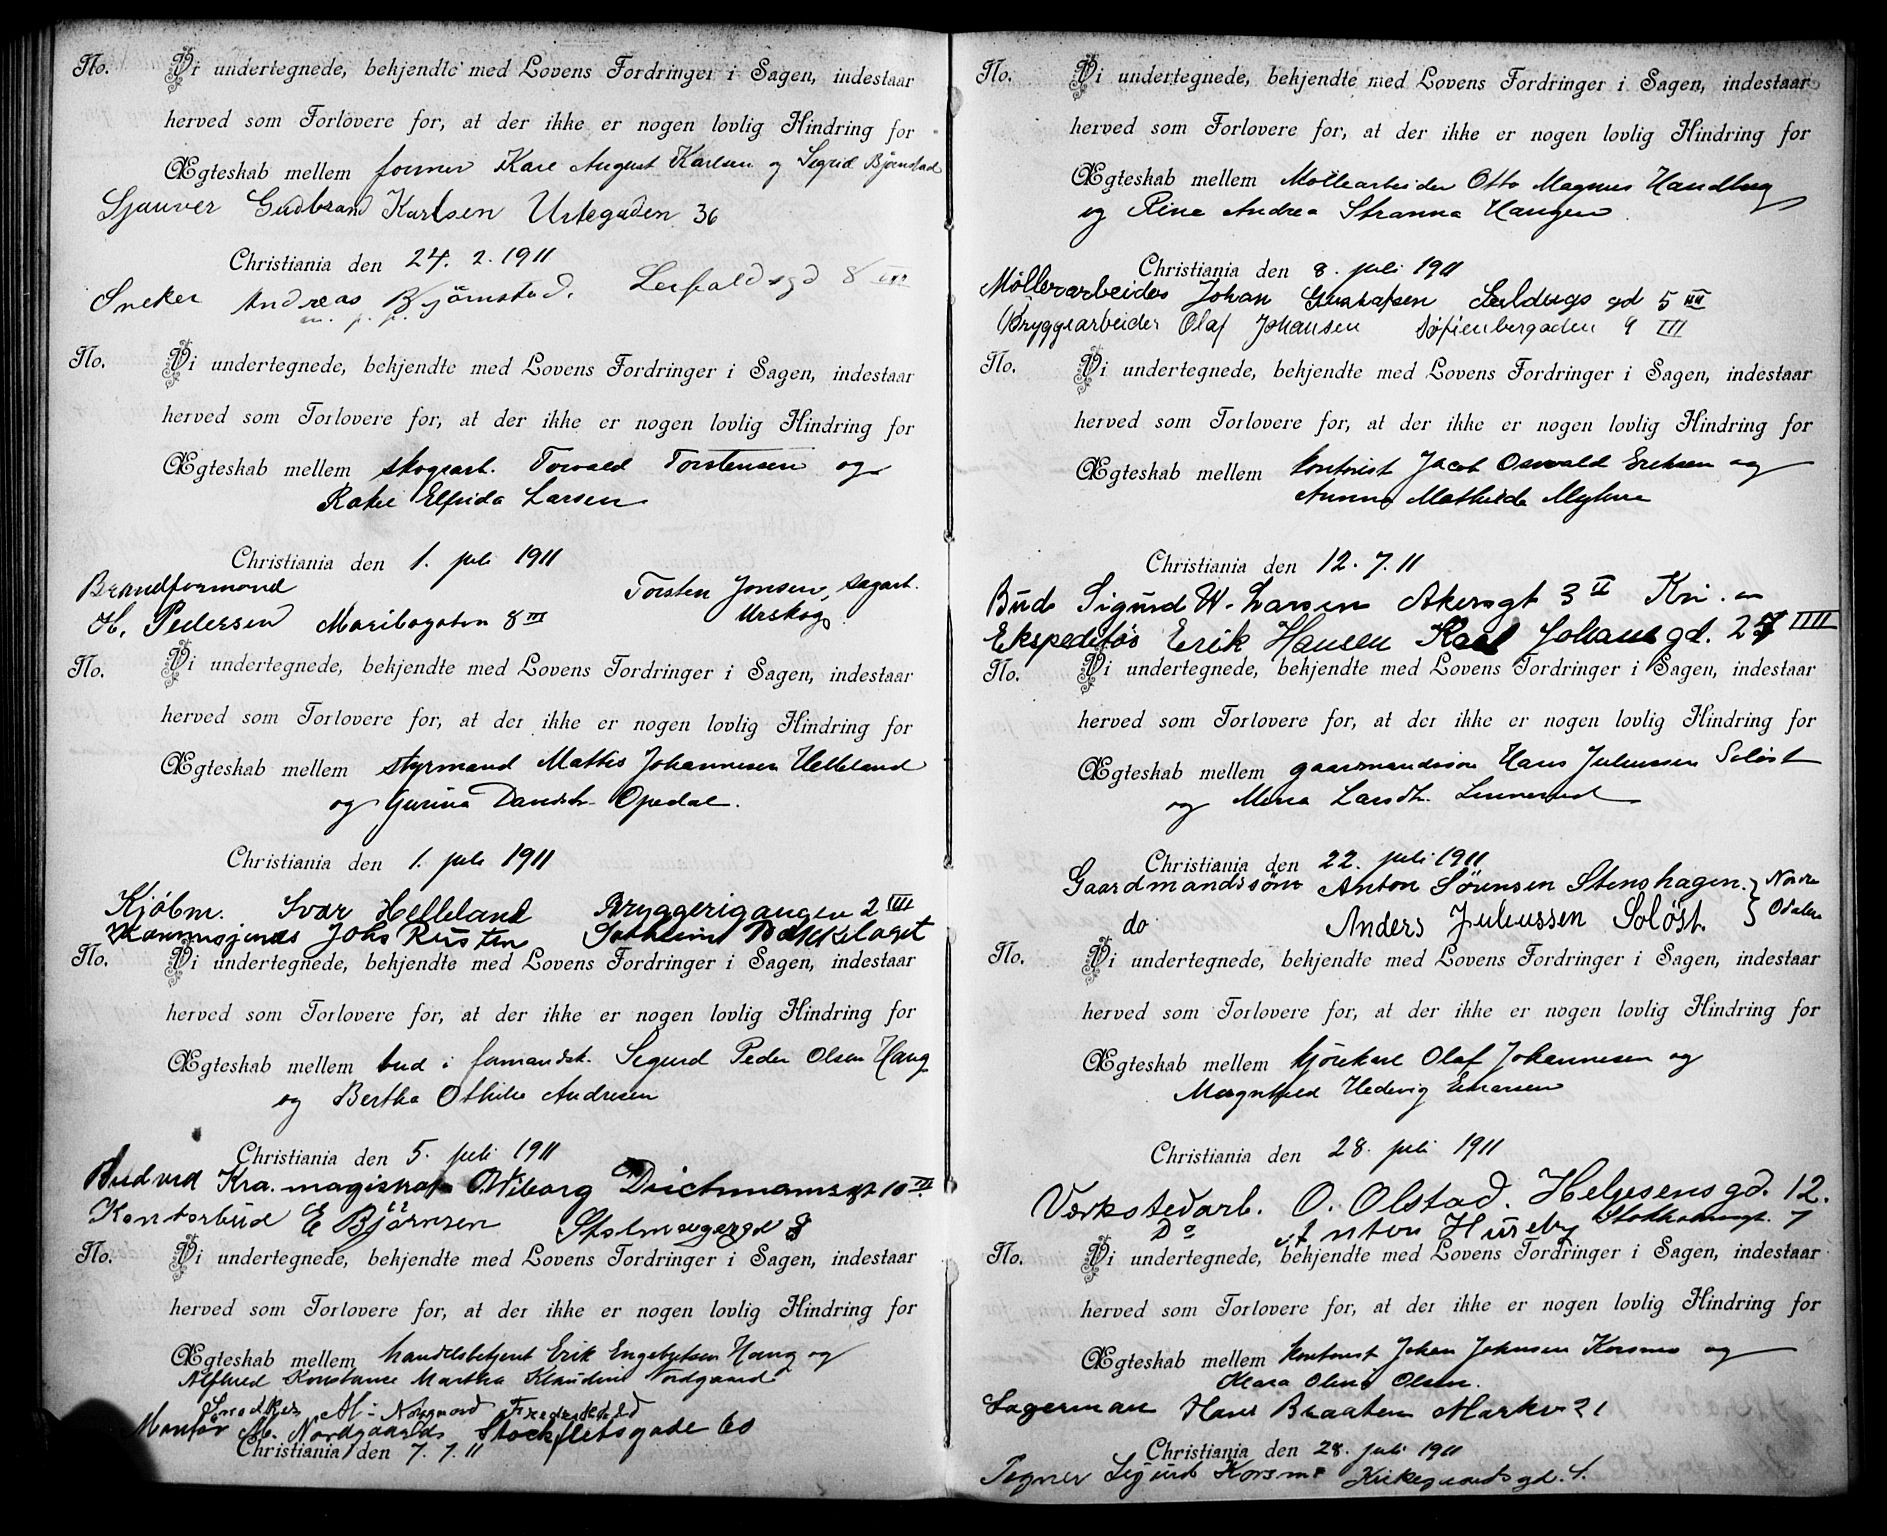 No. Vi undertegnede, bekjendte med Lovens Fordringer i Sagen, indestaar
herved som Forlovere for, at der ikke er nogen lovlig Hindring for
Ægteskab mellem former Karl August Karlsen og Sigrid Bjørnstad
Sjauver Gudbrand Karlsen Urtegaden 36
Christiania den 24. 2. 1911
Sneker Andreas Bjørnstad. 8 III
m. p. p.
No. Vi undertegnede, bekjendte med Lovens Fordringer i Sagen, indestaar
herved som Forlovere for, at der ikke er nogen lovlig Hindring for
Ægteskab mellem skogsarb. Torvald Torstensen og
Rakel Elfrida Larsen
Christiania den 1. juli 1911
Brandformand Torsten Jonsen, sagarb.
H. Pedersen Maribogaten 8 III Urskog.
No. Vi undertegnede, bekjendte med Lovens Fordringer i Sagen, indestaar
herved som Forlovere for, at der ikke er nogen lovlig Hindring for
Ægteskab mellem styrmand Mathis Johannesen Helleland
og Gurina Davidsdtr. Opedal.
Christiania den 1. juli 1911
Kjøbm. Ivar Helleland Bryggerigangen 2 III
Johs Rusten Solheim Bækkelaget
No. Vi undertegnede, bekjendte med Lovens Fordringer i Sagen, indestaar
herved som Forlovere for, at der ikke er nogen lovlig Hindring for
Ægteskab mellem bud i formandsk. Sigurd Peder Olsen Haug
og Bertha Othilie Andresen
Christiania den 5. juli 1911
Bud ved Kra. magistrat O Wiborg Deichmansgt 10 III
Kontorbud E Bjørnsen Stolmagergd 8
No. Vi undertegnede, bekjendte med Lovens Fordringer i Sagen, indestaar
herved som Forlovere for, at der ikke er nogen lovlig Hindring for
Ægteskab mellem handelsbetjent Erik Engebretsen Haug og
Alfhild Konstance Martha Klaudine Nordgaard
Snedker M. Nordgaard Fredrikstad
Montør M. Nordgaard Stockfletsgade 60
Christiania den 7. 7. 11
No. Vi undertegnede, bekjendte med Lovens Fordringer i Sagen, indestaar
herved som Forlovere for, at der ikke er nogen lovlig Hindring for
Ægteskab mellem Møllearbeider Otto Magnus Handberg
og Rine Andrea Stranna Haugen.
Christiania den 8. juli 1911
Møllerarbeider Johan Gustafsen Seildugs gd 5 III
Bryggearbeider Olaf Johansen Sofienbergaden 9 III
No. Vi undertegnede, bekjendte med Lovens Fordringer i Sagen, indestaar
herved som Forlovere for, at der ikke er nogen lovlig Hindring for
Ægteskab mellem kontorist Jacob Oswald Eriksen og
Anna Mathilde Myhre
Christiania den 12. 7. 11
Bud Sigurd W. Larsen Akersgt 3 II Kri.
Ekspeditør Erik Hansen Karl Johans gd. 27 IIII
No. Vi undertegnede, bekjendte med Lovens Fordringer i Sagen, indestaar
herved som Forlovere for, at der ikke er nogen lovlig Hindring for
Ægteskab mellem gaardmandssøn Hans Juliussen Soløst
og Mina Larsdtr. Linnerud
Christiania den 22. juli 1911
Gaardmandssøn Anton Sørensen Stenshagen. } Nordre
do Anders Juliussen Soløst. } Odalen
No. Vi undertegnede, bekjendte med Lovens Fordringer i Sagen, indestaar
herved som Forlovere for, at der ikke er nogen lovlig Hindring for
Ægteskab mellem kjørekar Olaf Johannesen og
Magnhild Hedvig Einarsen
Christiania den 28. juli 1911
Verkstedarb. O. Olstad. Helgesens gd. 12.
Do Anton Huseby Stokholmsgt. 7
No. Vi undertegnede, bekjendte med Lovens Fordringer i Sagen, indestaar
herved som Forlovere for, at der ikke er nogen lovlig Hindring for
Ægteskab mellem kontorist Johan Johnsen Korsmo og
Klara Oline Olsen.
Lagerman Hans Braaten Markv 21
Christiania den 28. juli 1911
Tegner Sigurd Korsmo Kirkegaardsgd. 1.